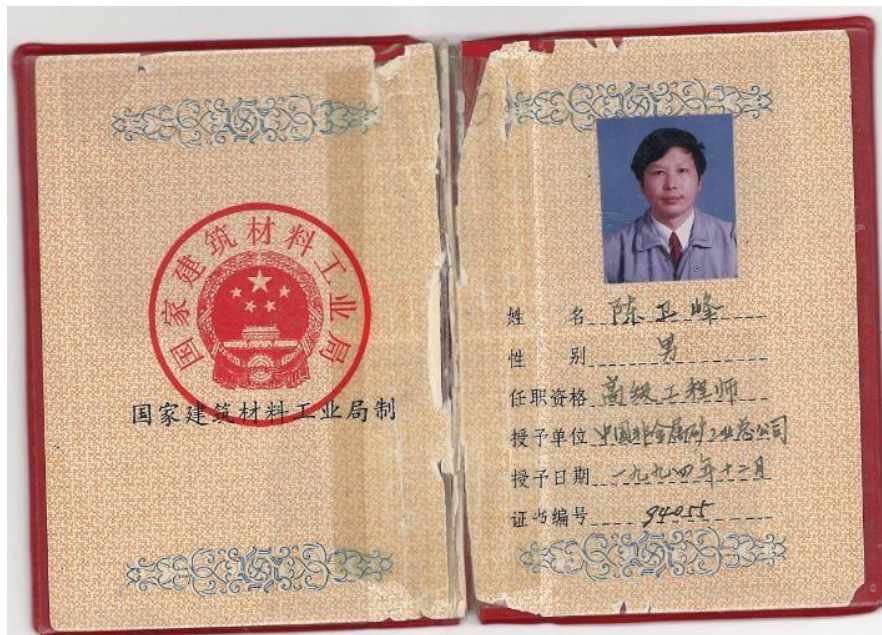 国家建筑材料工业局
国家建筑材料工业局制
姓 名 陈卫峰
性 别 男
任职资格 高级工程师
授予单位 中国非金属矿工业总公司
授予日期 一九九四年十二月
证书编号 94055